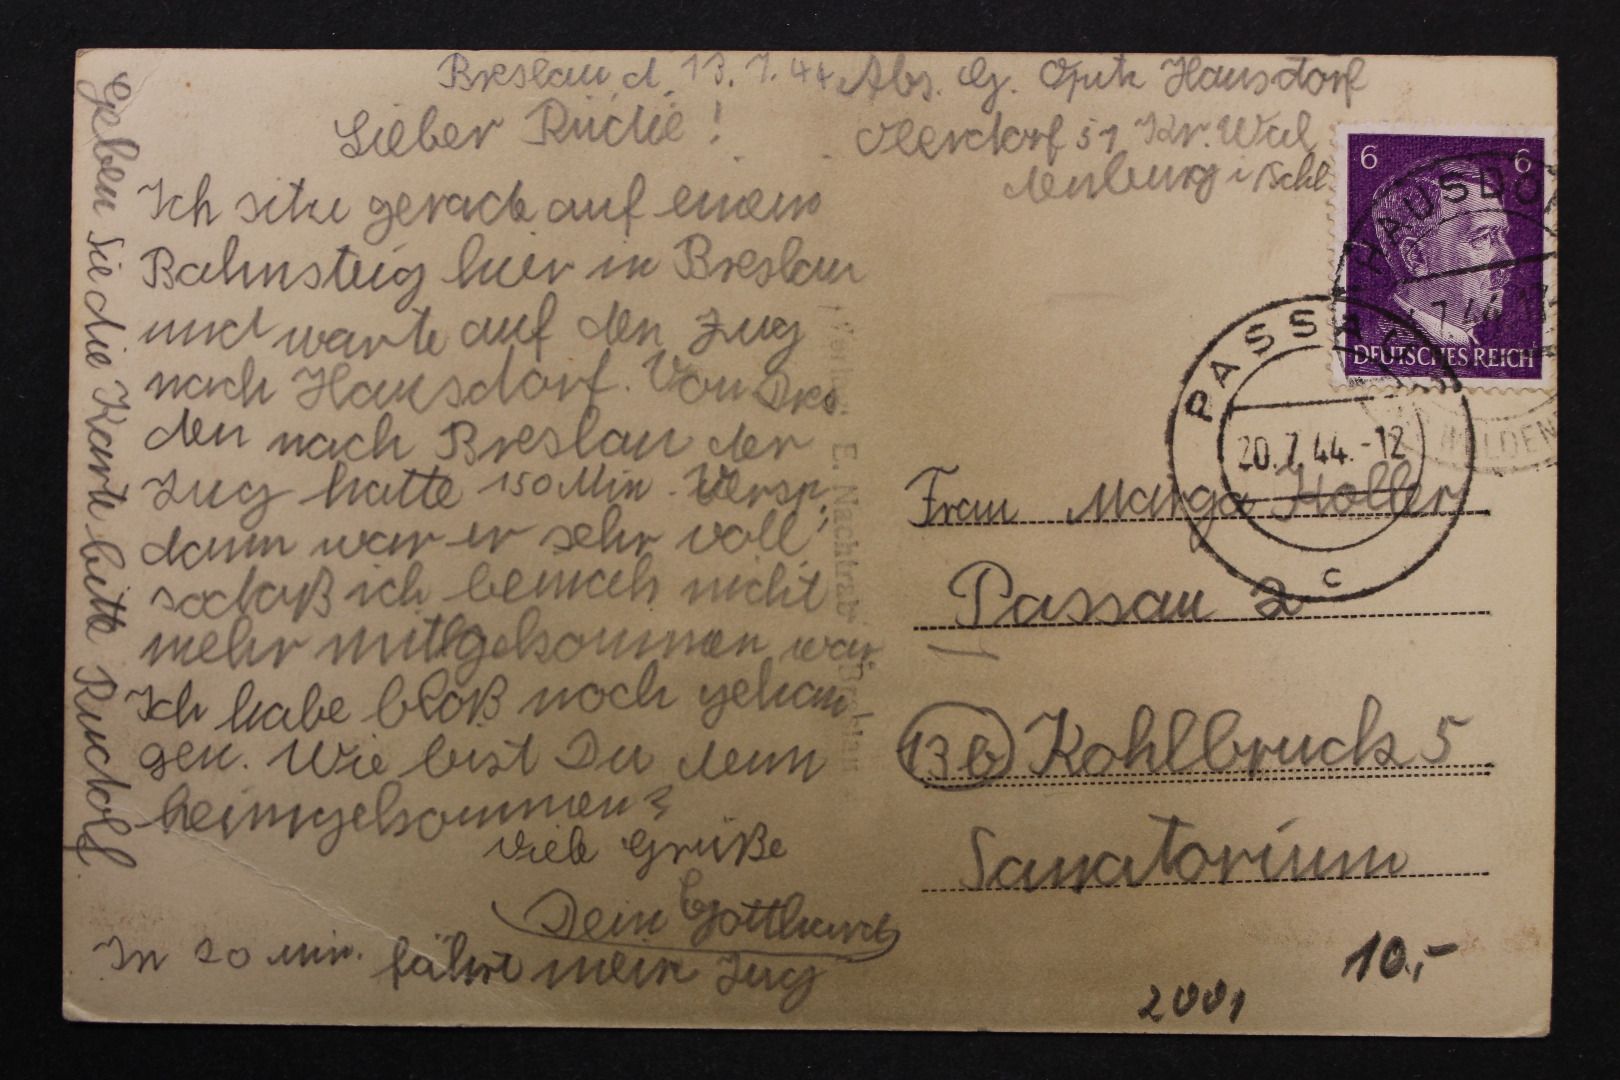 Breslau d. 13.7.44
Lieber Rudie!
Ich sitze gerade auf einem
Bahnsteig hier in Breslau
und warte auf den Zug
nach Hausdorf. Von Dres
den nach Breslau der
Zug hatte 150 Min. Versp.,
dann war er sehr voll
sodaß ich beinah nicht
mehr mitgekommen war
Ich habe bloß noch gehan-
gen. Wie bist Du denn
heimgekommen?
Viele Grüße
Dein
In 20 min. fährt mein Zug
Geben Sie die Karte bitte Rudolf
Abs. G. Opitz Hausdorf
Oberdorf 51 Kr. Wal
denburg i Schl.
6 6
DEUTSCHES REICH
HAUSDO
7.44
PASSAU
20.7.44.-12
c
Frau Marga Holler
Passau 2
13b Kohlbruck 5
Sanatorium
10,-
2001
E. Nachtrab Breslau